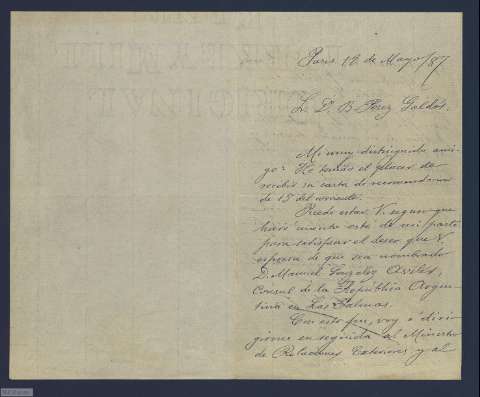 Paris 12 de Mayo/87.
S. D. B. Perez Galdós.
Mi muy distinguido ami-
go: He tenido el placer de
recibir su carta de recomendacion
de 15 del corriente.
Puede estar V. seguro que
haré cuanto esté de mi parte
para satisfacer el deseo que V.
expresa de que sea nombrado
D. Manuel Gonzalez Aviles,
Consul de la República Argen-
tina en Las Palmas.
Con este fin, voy á diri-
girme en seguida al Ministro
de Relaciones Exteriores y al